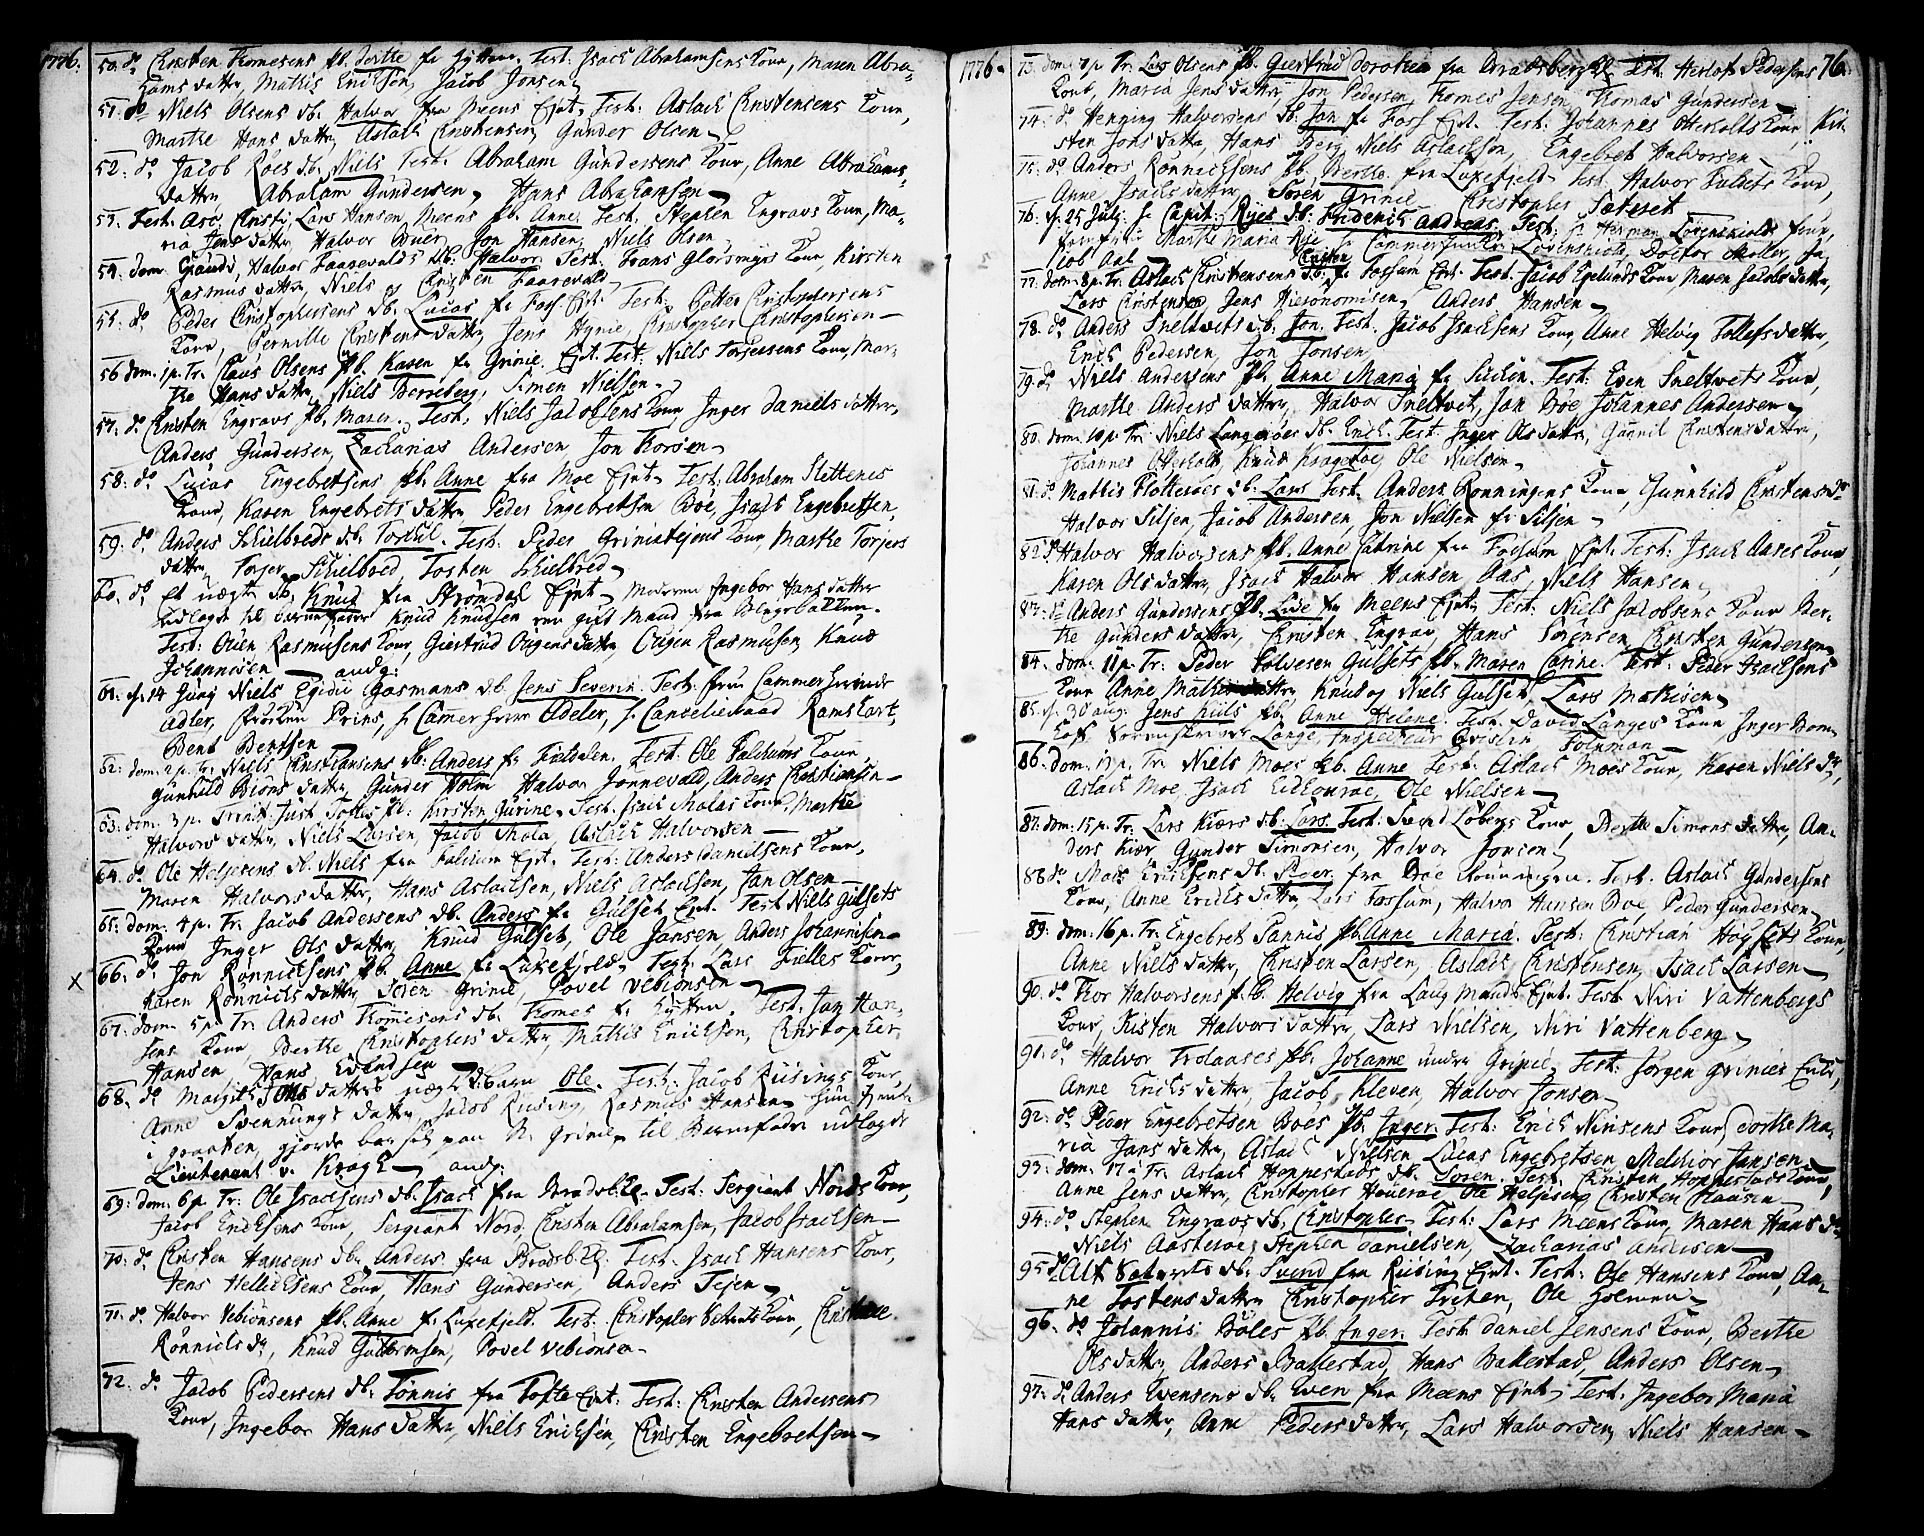 1776.
50. do Christen Thomesens pb. Berthe fr Hytten. Test. Isach Abrahamsens Kone, Maren Abra-
hams datter, Mathis Erichsen, Jacob Jonsen
51. do Niels Olsens db. Halvor fra Meens Ejnt. Test: Aslach Christensens Kone,
Marthe Hans datter, Aslach Christensen, Gunder Olsen
52. do Jacob Roes db. Niels Test. Abraham Gundersens Kone, Anne Abrahams-
datter, Abraham Gundersen, Hans Abrahamsen
53. Fest. Asc. Christi, Lars Hansen, Meens pb. Anne. Test. Stephen Engravs Kone, Ma-
ria Jens datter, Halvor Buer, Jon Hansen, Niels Olsen
54. dom. Exaudi, Halvor Faarevalds db. Halvor Test. Frans Glasmgrs Kone, Kirsten
Rasmus datter, Niels og Christen Faarevald
55. do Peder Christophersens db. Lucas fr Foss Ejnt. Test: Petter Christophersens
Kone, Pernille Christens datter, Jens Hynie, Christopher Christophersen
56 dom. 1 p. Tr. Claus Olsens pb. Karen fr Grinie Ejnt. Test. Niels Torgersens Kone, Mar-
the Hans datter, Niels Borreberg, Simen Nielsen
57. do Christen Engravs pb. Maren. Test. Niels Jacobsens Kone, Inger Daniels datter,
Anders Gundersen, Zacharias Andersen, Jon Thorsen
58. do Lucas Engebretsens pb. Anne fra Moe Ejnt. Test: Abraham Slettenes
Kone, Karen Engebrets datter, Peder Engebretsen Bøe, Isach Engebretsen
59. do Anders Schielbreds db. Torkil. Test: Peder Griniestejens Kone, Marthe Torjers
datter, Torjer Schielbred, Tosten Schielbred
60. do Et uægte db. Knud fra Strømdal Ejnt, Moderen Ingebor Hans datter
udlagde til Barnefader Knud Knudsen en gift Mand fra Slagebatten.
Test: Ouen Rasmusens Kone, Giertrud Origens datter, Origen Rasmusen, Knud
Johannisen andg:
61. d. 14 Junij Niels Egidii Gasmans db. Jens Severin. Test: Fru Cammerherinde
Adler, Frøcken Prins, hr Cammerherre Adeler, hr Cancelieraad Ramshart,
Bent Bentsen
62. dom. 2 p. Tr. Niels Christiansens db. Anders fr Fieldalen. Test. Ole Falchums Kone,
Gunhild Biøns datter, Gunder Holm, Halvor Jønnevald, Anders Christiansen
63. dom. 3 p. Trinit. Just Tostes pb. Kirsten Gurine. Test. Isach Molas Kone, Marthe
Halvors datter, Niels Larsen, Jacob Mola, Aslach Halvorsen
64. do Ole Heljesens db. Niels fra Falchum Ejnt. Test: Anders Danielsens Kone,
Maren Halvors datter, Hans Aslachsen, Niels Aslachsen, Jan Olsen
65. dom. 4 p. Tr. Jacob Andersens db. Anders fr Gulset Ejnt. Test Niels Gulsets
Kone Inger Ols datter, Knud Gulset, Ole Jansen, Anders Johannisen
X 66. do Jon Rønnichsens pb. Anne fr Luxefjeld, Test. Lars Fielles Kone,
Karen Rønnichs datter, Søren Grinie, Povel Vebiønsen
67. dom. 5 p. Tr. Anders Thomesens db. Thomes fr Hytten. Test. Jan Han-
sens Kone, Berthe Christophers datter, Mathis Erichsen, Christopher
Hansen, Hans Evensen
68. do Margith Ols datters uægte d.barn Ole. Test: Jacob Riisings Kone,
Anne Svennungs datter, Jacob Riising, Rasmus Hansen, hun tjente
i graaten, gjorde barsel paa N. Grinie, til Barnefader udlagde
Lieutenant v. Kragh andg:
69. dom. 6 p. Tr: Ole Isachsens db. Isach fra Bradsb.Cl. Test: Sergiant Nords Kone,
Jacob Erichsens Kone, Sergiant Nord, Christen Abrahamsen, Jacob Isachsen
70. do Christen Hansens db. Anders fra Bradsb.Cl. Test. Isach Hansens Kone,
Jens Hellichsens Kone, Hans Gundersen, Anders Jesen
71. do Halvor Vebiønsens pb. Anne fr Luxefjeld. Test: Christopher Sætrets Kone, Christiane
Rønnichs dr, Knud Guttormsen, Povel Vebiønsen
72. do Jacob Pedersens db. Tønnis fra Tofte Ejnt. Test: Christen Andersens
Kone, Ingebor Hans datter, Niels Erichsen, Christen Engebretsen
1776. 76.
73. dom. 7 p. Tr. Lars Olsens pb. Giertrud Dorothea fra Bradsberg Cl. Test: Herlof Pedersens
Kone, Maria Jens datter, Jon Pedersen, Thomes Jensen, Thomas Gundersen
74. do Henning Halvorsens db. Jan fr Foss Ejnt. Test. Johannes Otterholts Kone, Kir-
sten Jons datter, Hans Berg, Niels Aslachsen, Engebret Halvorsen
75. do Anders Rønnichsens pb. Berthe fra Luxefjeld Test. Halvor Fulsets Kone,
Anne Isachs datter, Søren Grinie, Christopher Sætret
76. d. 25 Julij hr Capit. Rijes db. Friderich Andreas, Test: hr Herman Løvenskiolds frue,
Jomfrue Marthe Maria Rije, hr Cammerjuncker Løvenskiold, Doctor Møller, Ja-
cob Aal
77. dom. 8 p. Tr. Aslach Christensens db. Christen fr Fossum Ejnt. Test. Jacob Eglunds Kone, Maren Jacobs datter,
Lars Christensen, Jens Hieronomisen, Anders Hansen
78. do Anders Sneltvets db. Jon. Test. Jacob Isachsens Kone, Anne Helvig Tollefs datter,
Erich Pedersen, Jon Jonsen
79. do Niels Andersens pb. Anne Maria fr Suchen. Test: Even Sneltvets Kone,
Marthe Anders datter, Halvor Sneltvet, Jan Bøe, Johannes Andersen
80. dom. 10 p. Tr. Niels Langerøes db. Erich. Test. Inger Ols datter, Gunnil Christensdatter,
Johannes Otterholt, Knud Kragerøe, Ole Nielsen
81. do Mattis Flotterøes db. Lars Test. Anders Rønningens Kone, Gunnhild Christens dr
Halvor Siljen, Jacob Andersen, Jon Nielsen fr Siljen
82. do Halvor Halvorsens pb. Anne Catrine fra Fossum Ejnt. Test: Isach Aases Kone,
Karen Ols datter, Isach Halvor Hansen, Aas, Niels Hansen,
83. do Anders Gundersens pb. Live fr Meens Ejnt. Test: Niels Jacobsens Kone Ber-
the Gunders datter, Christen Engrav, Hans Sørensen, Christen Gundersen
84. dom. 11 p. Tr: Peder Solvesen Gulsets pb. Maren Carine. Test: Peder Isachsens
Kone Anne Mathis datter, Knud og Niels Gulset, Lars Mathisen
85. d. 30 aug. Jens Kiils pb. Anne Helene. Test. David Langes Kone Inger Bom-
hoff, Sorenskriver Lange, Inspecteur Christen Tolnman
86. dom. 13 p. Tr. Niels Moes pb. Anne Test: Aslach Moes Kone, Karen Niels dr,
Aslach Moe, Isach Eichonroe, Ole Nielsen
87. dom. 15 p. Tr. Lars Kiærs db. Lars. Test: Svend Løbergs Kone, Berthe Simons datter, An-
ders Kiær, Gunder Simonsen, Halvor Jonsen
88. do Mads Erichsens db. Peder fra Bøe Rønningen. Test. Aslach Gundersens
Kone, Anne Erichs datter, Lars Fossum, Halvor Hansen Bøe, Peder Gundersen
89. dom. 16 p. Tr. Engebret Tannis pb. Anne Maria. Test: Christian Høysets Kone,
Anne Niels datter, Christen Larsen, Aslach Christensen, Isach Larsen
90. do Thor Halvorsens p.b. Helvig fra Laugmands Ejnt. Test Niri Vattenbergs
Kone, Kisten Halvors datter, Lars Nielsen, Niri Vattenberg
91. do Halvor Trolaases pb. Johanne under Gripe. Test: Jørgen Grinies Enke,
Anne Erichs datter, Jacob Kleven, Halvor Jonsen
92. do Peder Engebretsen Bøes pb. Inger. Test: Erich Nirisens Kone, Dorthe Ma-
ria Jans datter, Aslach Nielsen, Lucas Engebretsen, Melchior Jansen
93. dom. 17 p. Tr. Aslach Hoppestads db. Søren. Test. Christen Hoppestads Kone,
Anne Jens datter, Christopher Houerøe, Ole Heljesen, Christen Clausen
94. do Stephen Engravs db. Christopher. Test: Lars Meens Kone, Maren Hans dr
Niels Aasterøe, Stephen Danielsen, Zacharias Andersen
95. do Alf Sætrets db. Svend fra Riising Ejnt. Test: Ole Hansens Kone, An-
ne Tostens datter, Christopher Tveten, Ole Holmen
96. do Johannis Bøles pb. Inger. Test Daniel Jensens Kone, Berthe
Ols datter, Anders Ballestad, Hans Ballestad, Anders Olsen
97. do Anders Evensens db. Even fra Meens Ejnt. Test: Ingebor Maria
Hans datter, Anne Peders datter, Lars Halvorsen, Niels Hansen